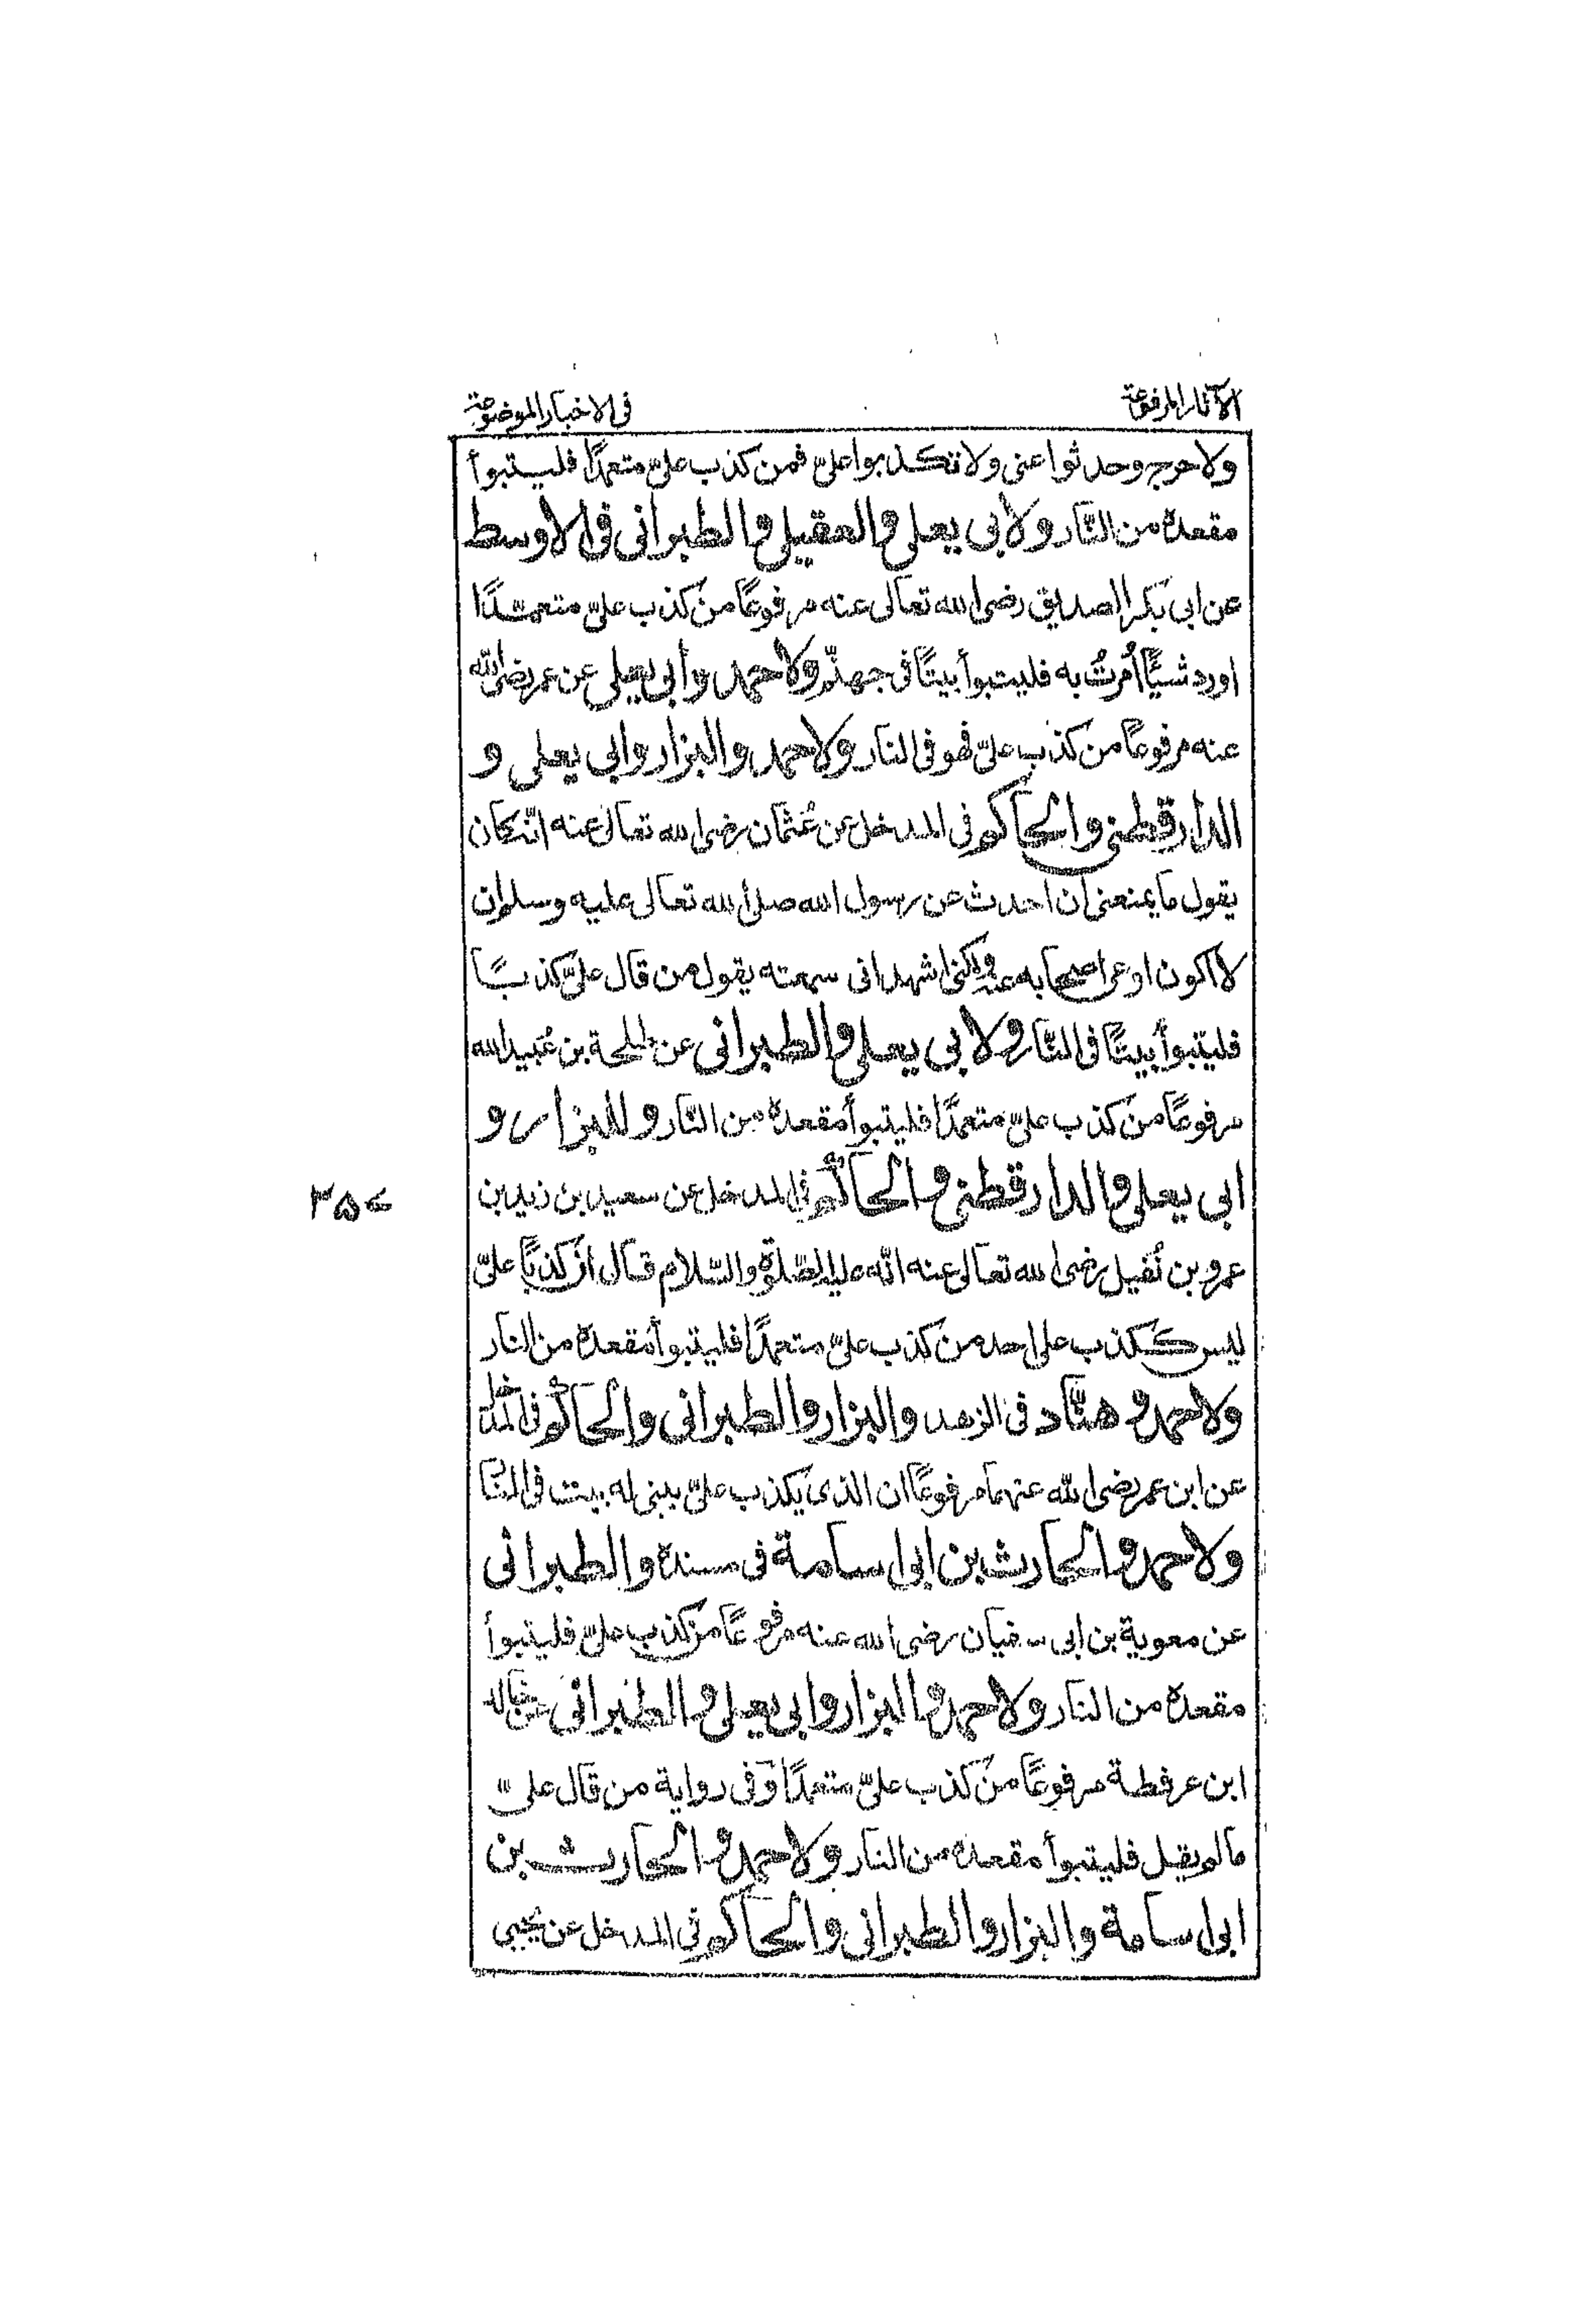 الآثار المرفوعة
في الاخبار الموضوعة
ولا حرج وحدثوا عنى ولا تكذبوا علىّ فمن كذب علىّ متعمدًا فليتبوأ
مقعده من النّار ولابى يعلى والعقيلى والطبرانى فى الاوسط
عن ابى بكر الصديق رضى الله تعالى عنه مرفوعًا من كذب علىّ متعمّدًا
اورد شيئًا أمرتُ به فليتبوأ بيتًا فى جهنّم ولاحمد وأبى يعلى عن عمر رضى الله
عنه مرفوعًا من كذب علىّ فهو فى النار ولاحمد والبزار وابى يعلى و
الدارقطنى والحاكم فى المدخل عن عُثمان رضى الله تعالى عنه انّه كان
يقول ما يمنعنى ان احدث عن رسول الله صلى الله تعالى عليه وسلم ان
لا اكون اوعى اصحابه عنه ولكنى اشهد انى سمعته يقول من قال علىّ كذبًا
فليتبوأ بيتًا فى النّار ولابى يعلى والطبرانى عن طلحة بن عُبيد الله
مرفوعًا من كذب علىّ متعمّدًا فليتبوأ مقعده من النّار وللبزار و
ابى يعلى والدارقطنى والحاكم فى المدخل عن سعيد بن زيد بن
٣٥>
عمرو بن نُفيل رضى الله تعالى عنه انّه عليه الصّلوة والسّلام قال ان كذبًا علىّ
ليس ككذب على احد من كذب علىّ متعمدًا فليتبوأ مقعده من النار
ولاحمد وهنّاد فى الزهد والبزار والطبرانى والحاكم فى المدخل
عن ابن عمر رضى الله عنهما مرفوعًا ان الذى يكذب علىّ يبنى له بيت فى النّار
ولاحمد والحارث بن ابى اسامة فى مسنده والطبرانى
عن معوية بن ابى سفيان رضى الله عنه مرفوعًا من كذب علىّ فليتبوأ
مقعده من النار ولاحمد والبزار وابى يعلى والطبرانى عن خالد
ابن عرفطة مرفوعًا من كذب علىّ متعمدًا وفى رواية من قال علىّ
ما لم يقل فليتبوأ مقعده من النار ولاحمد والحارث بن
ابى اسامة والبزار والطبرانى والحاكم فى المدخل عن يحيى